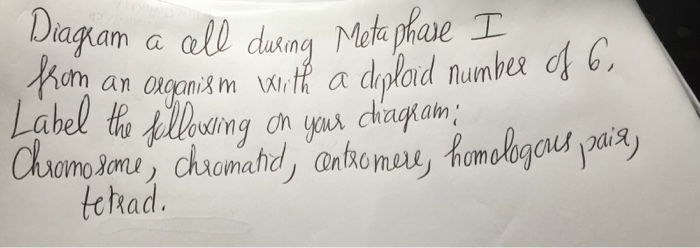 Diagram a cell during Metaphase I
from an organism with a diploid number of 6.
Label the following on your diagram:
Chromosome, chromatid, centromere, homologous pair,
tetrad.